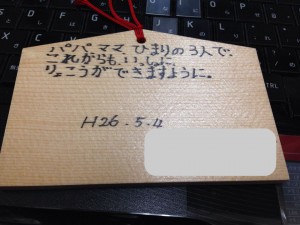 パパママ ひまりの3人で、
これからも、いっしょに、
りょこうができますように。
H26.5.4